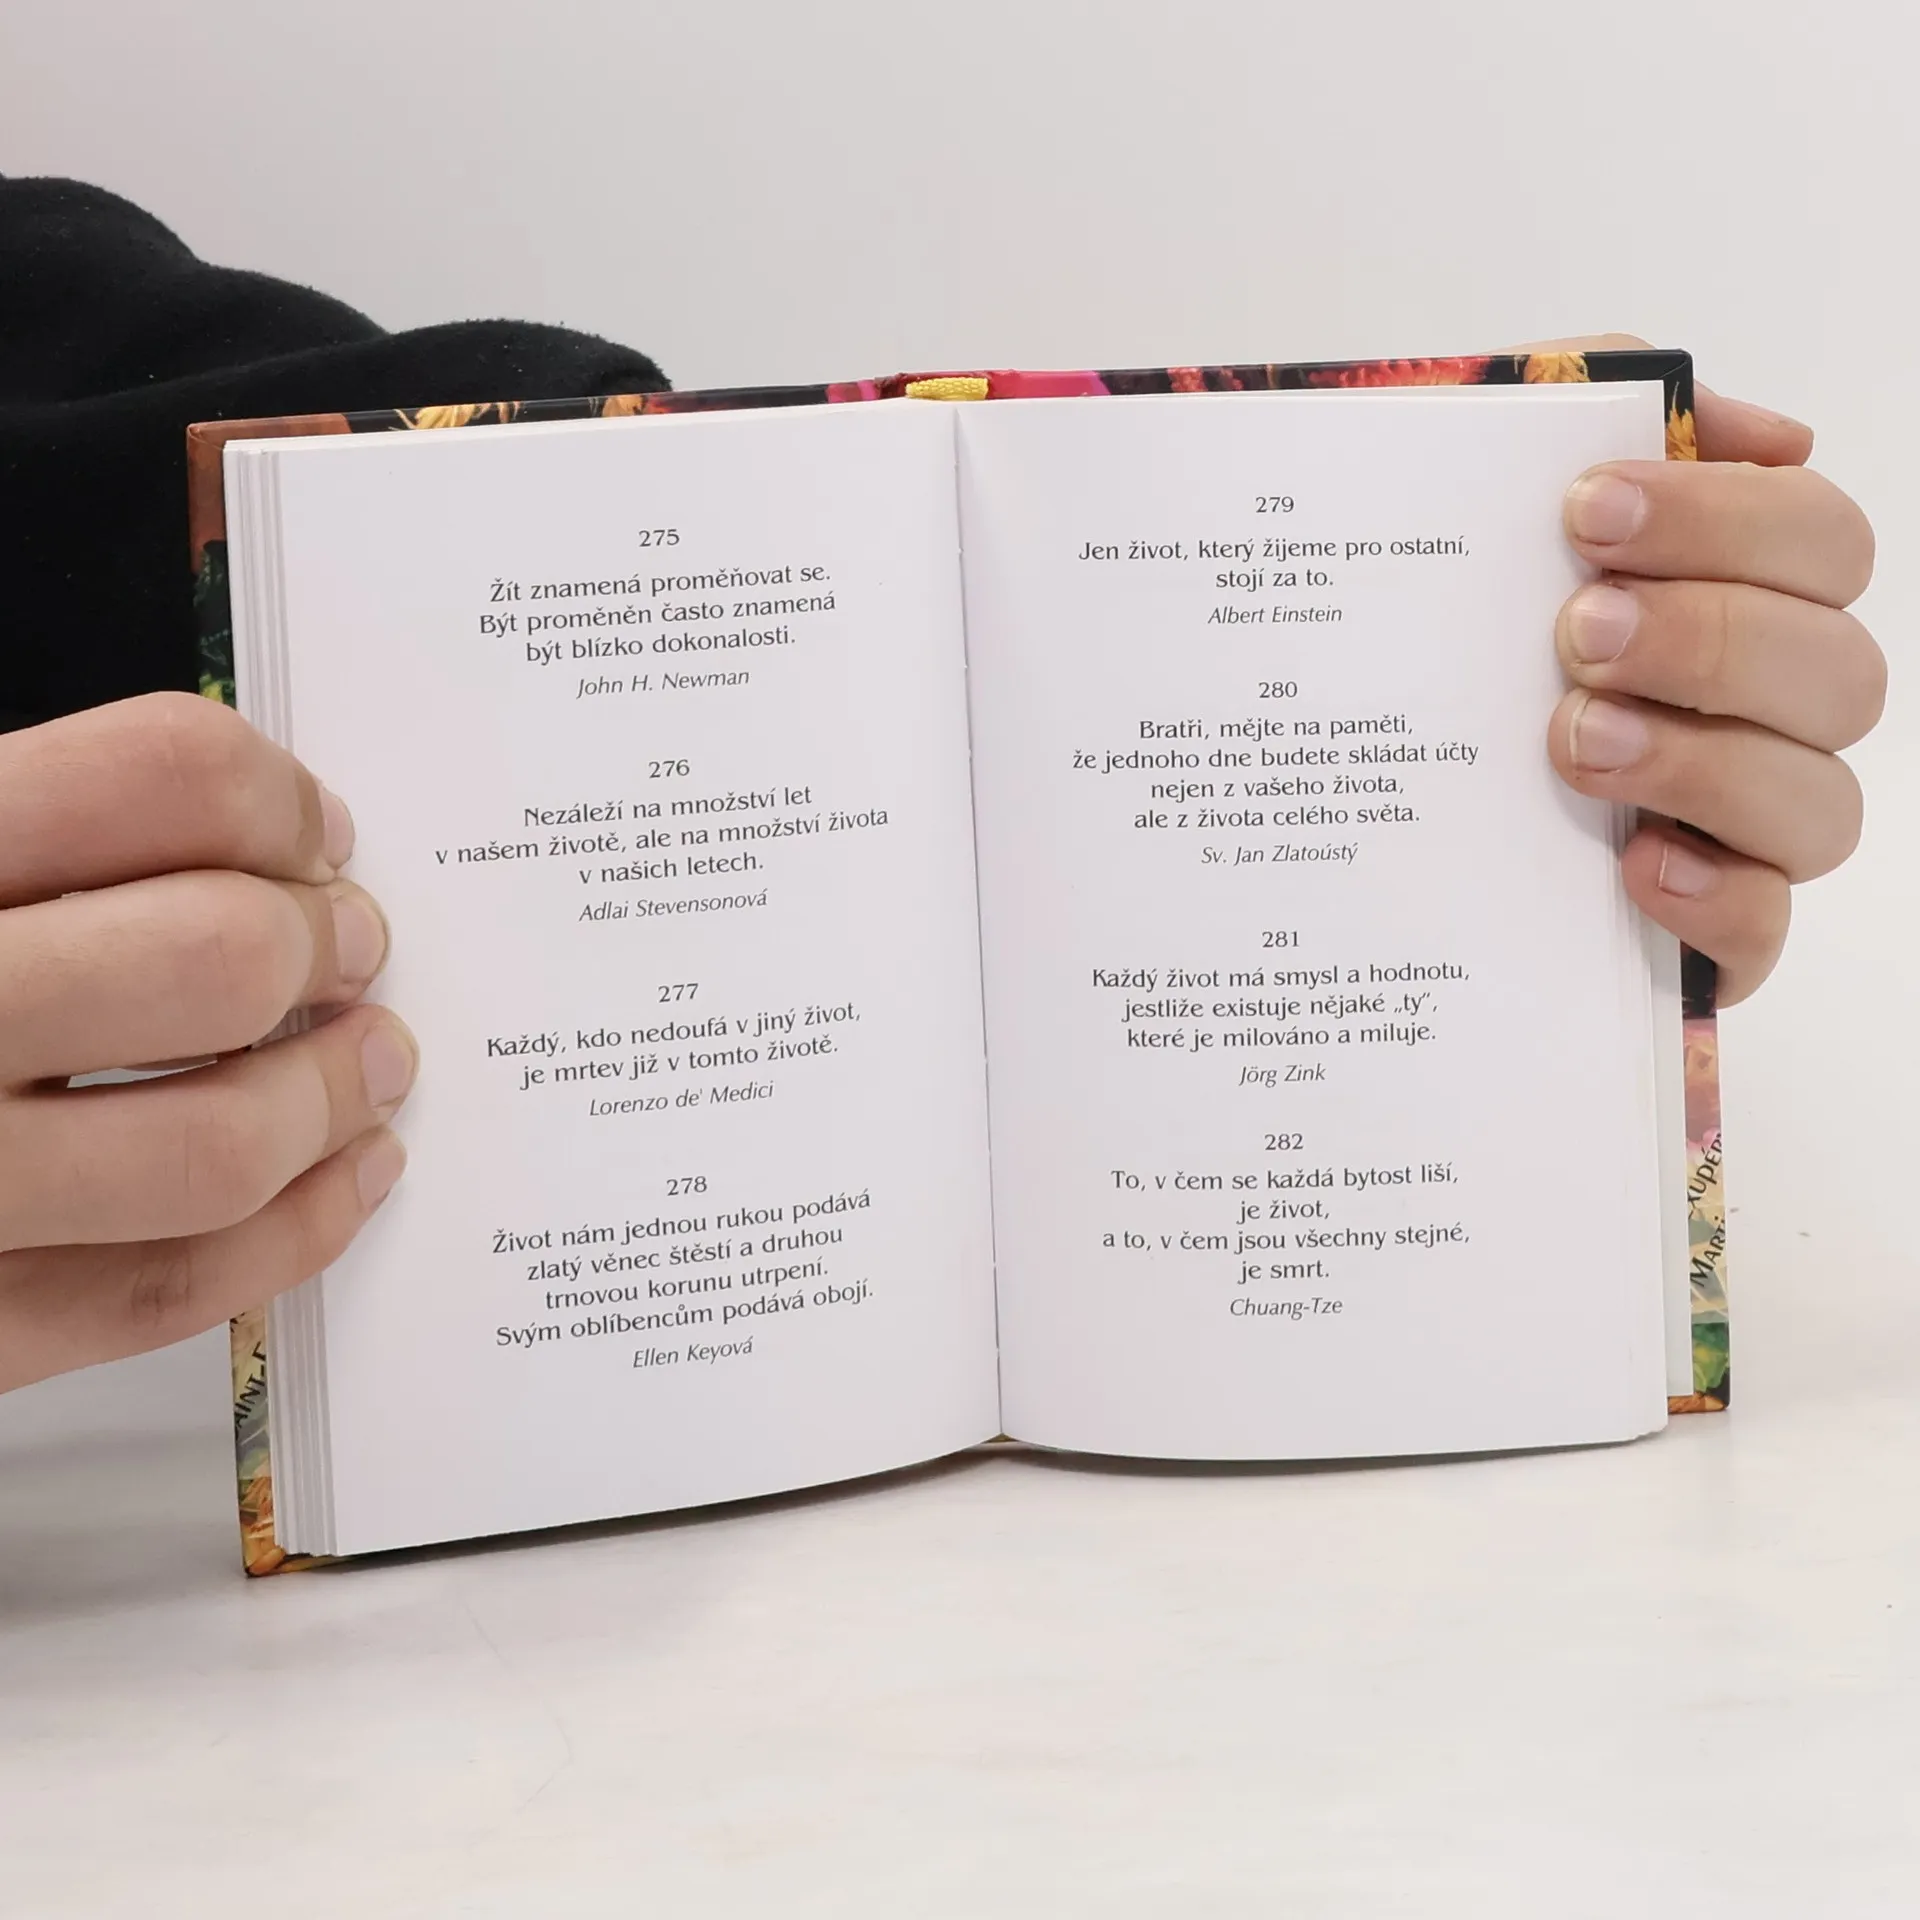 275
Žít znamená proměňovat se.
Být proměněn často znamená
být blízko dokonalosti.
John H. Newman
276
Nezáleží na množství let
v našem životě, ale na množství života
v našich letech.
Adlai Stevensonová
277
Každý, kdo nedoufá v jiný život,
je mrtev již v tomto životě.
Lorenzo de' Medici
278
Život nám jednou rukou podává
zlatý věnec štěstí a druhou
trnovou korunu utrpení.
Svým oblíbencům podává obojí.
Ellen Keyová
279
Jen život, který žijeme pro ostatní,
stojí za to.
Albert Einstein
280
Bratři, mějte na paměti,
že jednoho dne budete skládat účty
nejen z vašeho života,
ale z života celého světa.
Sv. Jan Zlatoústý
281
Každý život má smysl a hodnotu,
jestliže existuje nějaké „ty“,
které je milováno a miluje.
Jörg Zink
282
To, v čem se každá bytost liší,
je život,
a to, v čem jsou všechny stejné,
je smrt.
Chuang-Tze